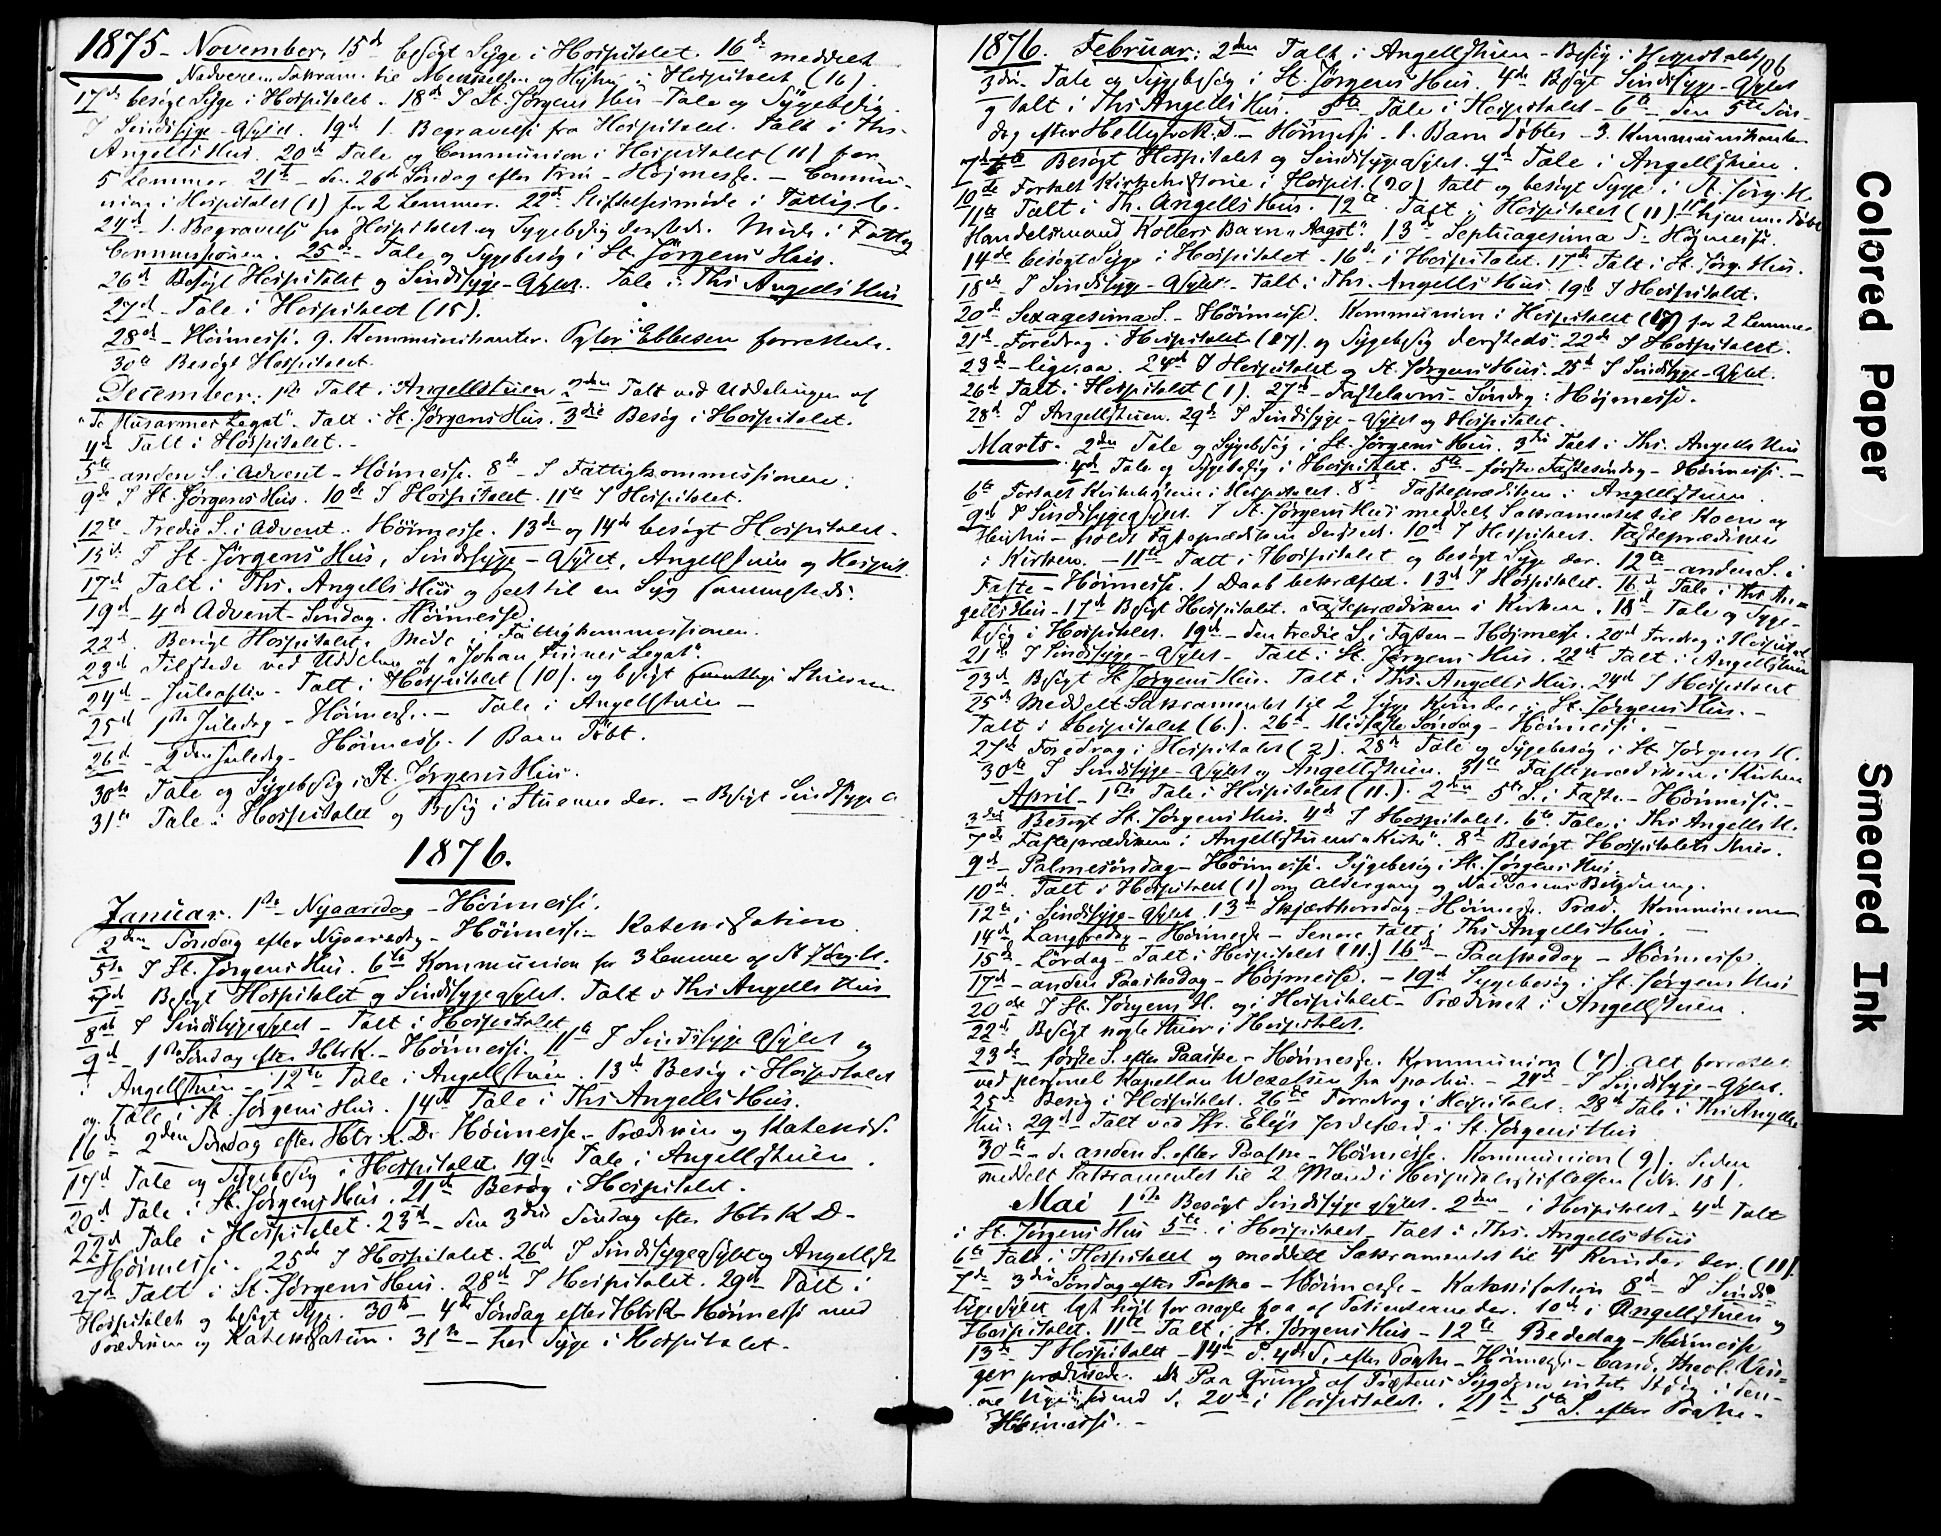 1875 - November, 15de besøgt Syge i Hospitalet. 16de meddelt
Nadverens Sakram. til og i Hospitalet (16)
17de besøgt Syge i Hospitalet. 18de I St. Jørgens Hus - Tale og Sygebesøg.
I Sindssyge-Asylet. 19de 1. Begravelse fra Hospitalet. Talt i Ths.
Angells Hus. 20de Tale og Communion i Hospitalet (11) for
5 Lemmer. 21de - den 26de Søndag efter Trin - Højmesse. - Commu-
nion i Hospitalet (1) for 2 Lemmer. 22de Stiftelsesmøde i Fattig-C.
24de 1. Begravelse fra Hospitalet og Sygebesøg dersteds. Møde i Fattig
Commissionen. 25de - Tale og Sygebesøg i St. Jørgens Hus.
26de Besøgt Hospitalet og Sindssyge-Asylet. Tale i Ths Angells Hus
27de - Tale i Hospitalet (15).
28de - Höimesse. 9. Kommunikanter. Pastor Ebbesen forrettede.
30te Besøgt Hospitalet.
December: 1ste Talt i Angellstuen 2den Talt ved Uddelingen af
"De Husarmes Legat". Talt i St. Jørgens Hus. 3die Besøg i Hospitalet.
4de Talt i Hospitalet. -
5te anden S. i Advent - Höimesse. 8de - I Fattigkommissionen.
9de I St. Jørgens Hus. 10de I Hospitalet. 11te I Hospitalet.
12te - Tredie S. i Advent. Höimesse. 13de og 14de besøgt Hospitalet.
15de I St. Jørgens Hus, Sindssyge-Asylet, Angellstuen og Hospit.
17de Talt i Ths. Angells Hus og til en Syg sammesteds.
19de - 4de Advent-Søndag. Höimesse.
22de. Besøgt Hospitalet. Møde i Fattigkommissionen.
23de Tilstede ved Uddeling af "Johan Finnes Legat".
24de - Juleaften - Talt i Hospitalet (10). og besøgt samtlige Stuerne
25de 1ste Juledag - Höimesse. - Tale i Angellstuen -
26de - 2den Juledag - Höimesse. 1 Barn Døbt.
30te Tale og Sygebesøg i St. Jørgens Hus.
31te Tale i Hospitalet og Besøg i Stuerne der. - Besøgt Sindssyge A
1876.
Januar. 1ste - Nyaarsdag - Höimesse.
2den Søndag efter Nyaarsdag - Höimesse - Katekisation
5te I St. Jørgens Hus. 6te Kommunion for 3 Lemmer af St. Jørg. H.
7de Besøgt Hospitalet og Sindssygeasylet. Talt i Ths Angells Hus
8de I Sindssygeasylet - Talt i Hospitalet
9de - 1ste Søndag efter HtrK. - Höimesse. 11te I Sindssyge Asylet og
i Angellstuen - 12te Tale i Angellstuen. 13de Besøg i Hospitalet
og Tale i St. Jørgens Hus. 14de Tale i Ths Angells Hus.
16de - 2den Søndag efter Htr.K.D. Höimesse - Prædiken og Katekis.
17de Tale og Sygebesøg i Hospitalet. 19de Tale i Angellstuen.
20de Tale i St. Jørgens Hus. 21de Besøg i Hospitalet.
22de Tale i Hospitalet. 23de - den 3die Søndag efter HtrK D -
Höimesse. 25de I Hospitalet. 26de I Sindssygeasylet og Angellst
27de Talt i St. Jørgens Hus. 28de I Hospitalet. 29de Talt i
Hospitalet og besøgt Syge. 30te - 4de Søndag efter HtrK - Höimesse med
Prædiken og Katekisation. 31te - hos Syge i Hospitalet.
1876. Februar: 2den Talt i Angellstuen - Besøg i Hospitalet 106
3die. Tale og Sygebesøg i St. Jørgens Hus. 4de Besøgt Sindssyge-Asylet
og talt i Ths Angells Hus. 5te Tale i Hospitalet - 6te den 5te Søn-
dag efter Hellig3K.D. - Höimesse. 1. Barn døbtes - 3. Kommunikanter
7de Besøgt Hospitalet og Sindssygeasylet. 9de Tale i Angellstuen.
10de Fortalt Kirkehistorie i Hospit. (20) Talt og besøgt Syge i St. Jørg. H.
11te Talt i Th. Angells Hus. 12te Talt i Hospitalet (11) hjemme døbt
Handelsmand Kollers Barn "Aagot". 13de Septuagesima S. Højmesse.
14de besøgt Syge i Hospitalet - 16de i Hospitalet. 17de Talt i St. Jørg. Hus.
18de I Sindssyge-Asylet - Talt i Ths. Angells Hus. 19de I Hospitalet.
20de Sexagesima S. - Höimesse. Kommunion i Hospitalet for 2 Lemmer
21de - Foredrag i Hospitalet (27). og Sygebesøg dersteds. 22de I Hospitalet.
23de - ligesaa. 24de I Hospitalet og St. Jørgens Hus. 25de I Sindssyge-Asylet.
26de Talt i Hospitalet (1). 27de - Fastelavns-Søndag: Höjmesse.
28de I Angellstuen. 29de I Sindssyge-Asylet og Hospitalet.
Marts. 2den Tale og Sygebesøg i St. Jørgens Hus. 3die Talt i Ths. Angells Hus
4de Tale og Sygebesøg i Hospitalet. 5te - første Fastesøndag - Höimesse. -
6te Fortalt Kirkehistorie i Hospitalet. 8de Fasteprædiken i Angellstuen.
9de I Sindssygeasylet. I St. Jørgens Hus meddelt Sakramentet til Koen og
Hustru - holdt Fasteprædiken dersteds. 10de I Hospitalet. Fasteprædiken
i Kirken. - 11te Talt i Hospitalet og besøgt Syge der. 12te - anden S. i
Faste - Höimesse. 1 Daab bekræftet. 13de I Hospitalet. 16de Tale i Ths An-
gells Hus - 17de Besøgt Hospitalet. Fasteprædiken i Kirken. 18de - Tale og Syge-
besøg i Hospitalet. 19de - den tredie S. i Fasten - Höjmesse. 20de Foredrag i Hospitalet
21de I Sindssyge-Asylet - Talt i St. Jørgens Hus. 22de Talt i Angellstuen
23de Besøgt St. Jørgens Hus. Talt i Ths. Angells Hus. 24de I Hospitalet
25de Meddelt Sakramentet til 2 syge Kvinder i St. Jørgens Hus. -
Talt i Hospitalet (6.). 26de - Midfaste Søndag - Höimesse. -
27de Foredrag i Hospitalet (2). 28de Tale og Sygebesøg i St. Jørgens H.
30te I Sindssyge-Asylet og Angellstuen. 31te Fasteprædiken i Kirken
April - 1ste Tale i Hospitalet (11.). 2den - 5te S. i Faste - Höimesse. -
3die Besøgt St. Jørgens Hus. 4de I Hospitalet. 6te Tale i Ths Angells H.
7de Fasteprædiken i Angellstuens "Kirke". 8de Besøgt Hospitalets Stuer.
9de - Palmesøndag - Höimesse. Sygebesøg i St. Jørgens Hus.
10de. Talt i Hospitalet (1) om Altergang og Nadverens Betydning.
12te i Sindssyge-Asylet 13de Skjærthorsdag - Höimesse. Præd. Kommunion
14de Langfredag - Höimesse - Senere talt i Ths Angells Hus. -
15de - Lördag - Talt i Hospitalet (11.) 16de - Paaskedag - Höimesse.
17de - anden Paaskedag - Höjmesse. - 19de Sygebesøg i St. Jørgens Hus
20de I St. Jørgens H. og i Hospitalet - Prædiket i Angellstuen.
22de Besøgt nogle Stuer i Hospitalet.
23de - første S. efter Paaske - Höimesse. Kommunion (7) Alt forrettet
ved personel Kapellan Wexelsen fra Sparbu. - 24de - I Sindssyge-Asylet.
25de Besøg i Hospitalet. 26de Foredrag i Hospitalet. 28de Tale i Ths Angells
Hus: 29de - Talt ved Fr. Elys Jordefærd i St. Jørgens Hus
30te - d. anden S. efter Paaske - Höimesse. Kommunion (9). Siden
meddelt Sakramentet til 2. Mænd i Hospitalsstiftelsen (Nr. 15).
Mai 1ste Besøgt Sindssyge Asylet. 2den - i Hospitalet - 4de Talt
i St. Jørgens Hus 5te. i Hospitalet Talt i Ths. Angells Hus
6te Talt i Hospitalet og meddelt Sakramentet til 4 Kvinder der. (11).
7de 3die Søndag efter Paaske - Höimesse - Katekisation 8de - I Sinds-
sygeasylet læst højt for nogle faa af Patienterne der. 10de i Angellstuen og
Hospitalet. 11te Talt i St. Jørgens Hus - 12te Bededag - Höimesse
13de I Hospitalet - 14de d. 4de S. efter Paaske - Höimesse - Cand. theol.
prædikede. Paa Grund af Præstens Sygdom intet Besøg i den-
ne Uge d. 20de i Hospitalet. 21de 5te S. efter Paaske -
Höimesse. -
Colored Paper
Smeared Ink